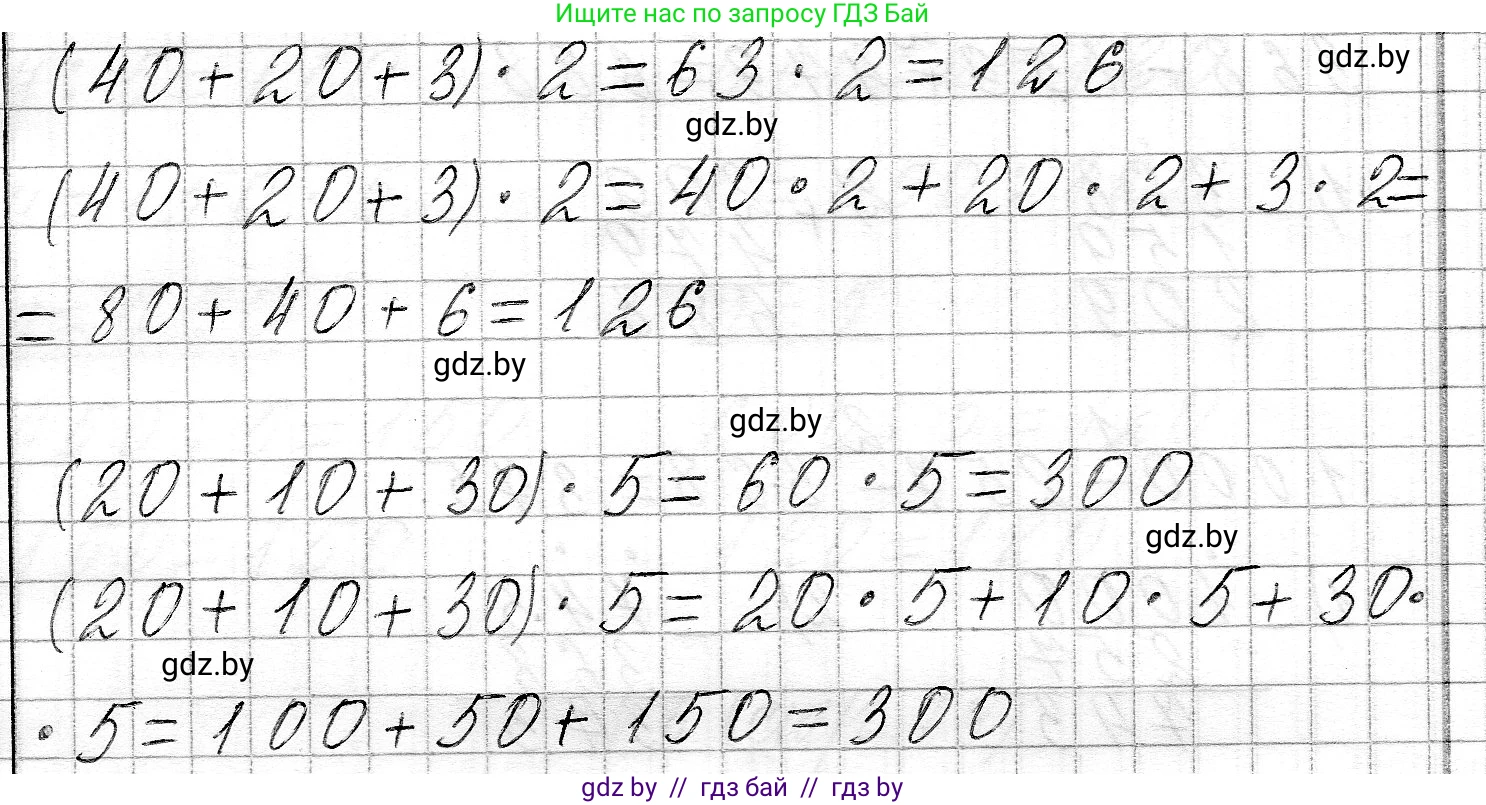 Ищите нас по запросу ГДЗ Бай
(40+20+3)·2=63·2=126
gdz.by
gdz.by
(40+20+3)·2=40·2+20·2+3·2=
=80+40+6=126
gdz.by
gdz.by
(20+10+30)·5=60·5=300
gdz.by
(20+10+30)·5=20·5+10·5+30·
gdz.by
·5=100+50+150=300
gdz by // гдз бай // гдз by